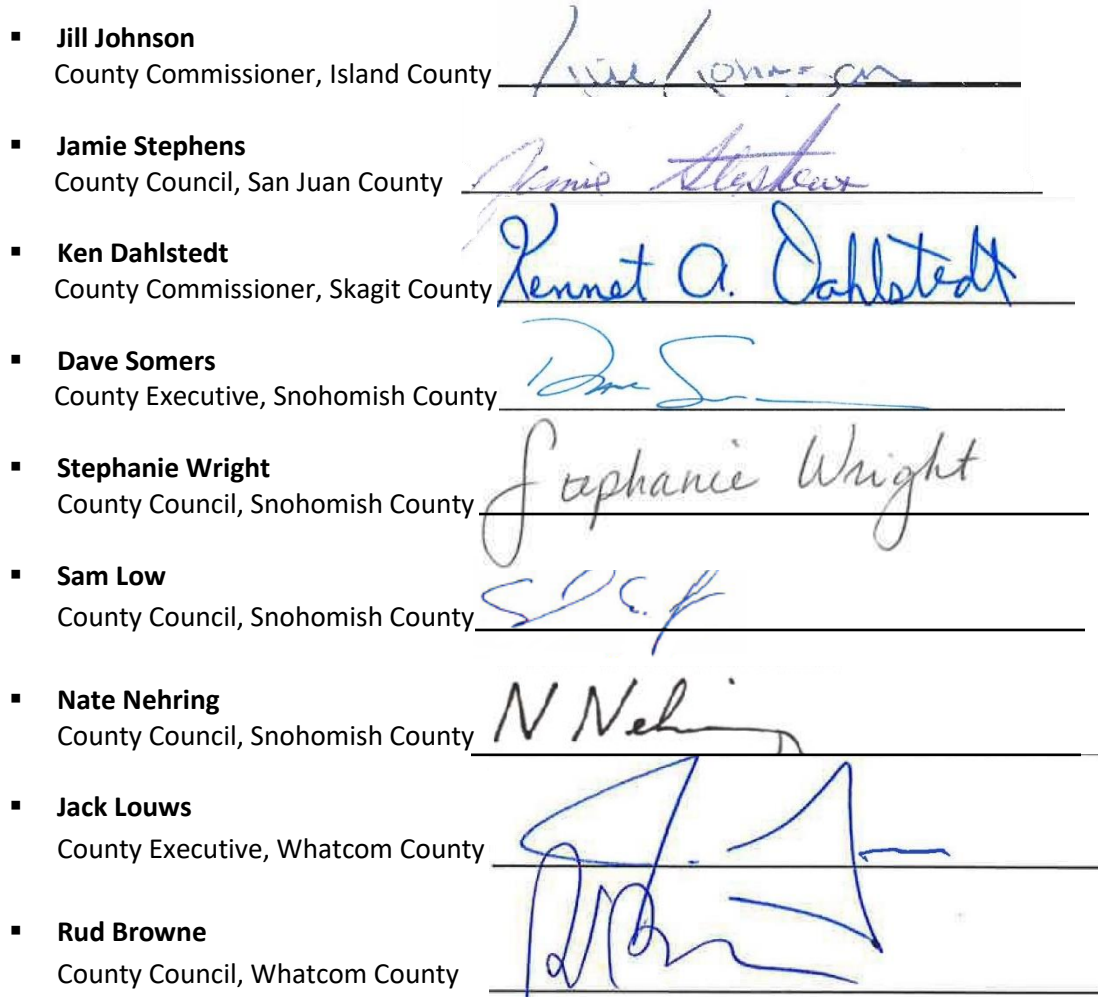 ▪ Jill Johnson
County Commissioner, Island County Jill Johnson
▪ Jamie Stephens
County Council, San Juan County Jamie Stephens
▪ Ken Dahlstedt
County Commissioner, Skagit County Kennet A. Dahlstedt
▪ Dave Somers
County Executive, Snohomish County
▪ Stephanie Wright
County Council, Snohomish County Stephanie Wright
▪ Sam Low
County Council, Snohomish County
▪ Nate Nehring
County Council, Snohomish County N Nehring
▪ Jack Louws
County Executive, Whatcom County
▪ Rud Browne
County Council, Whatcom County